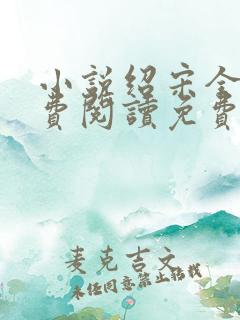 小説紹宋全
費閱讀免費
麦克吉文
未经同意禁止转载